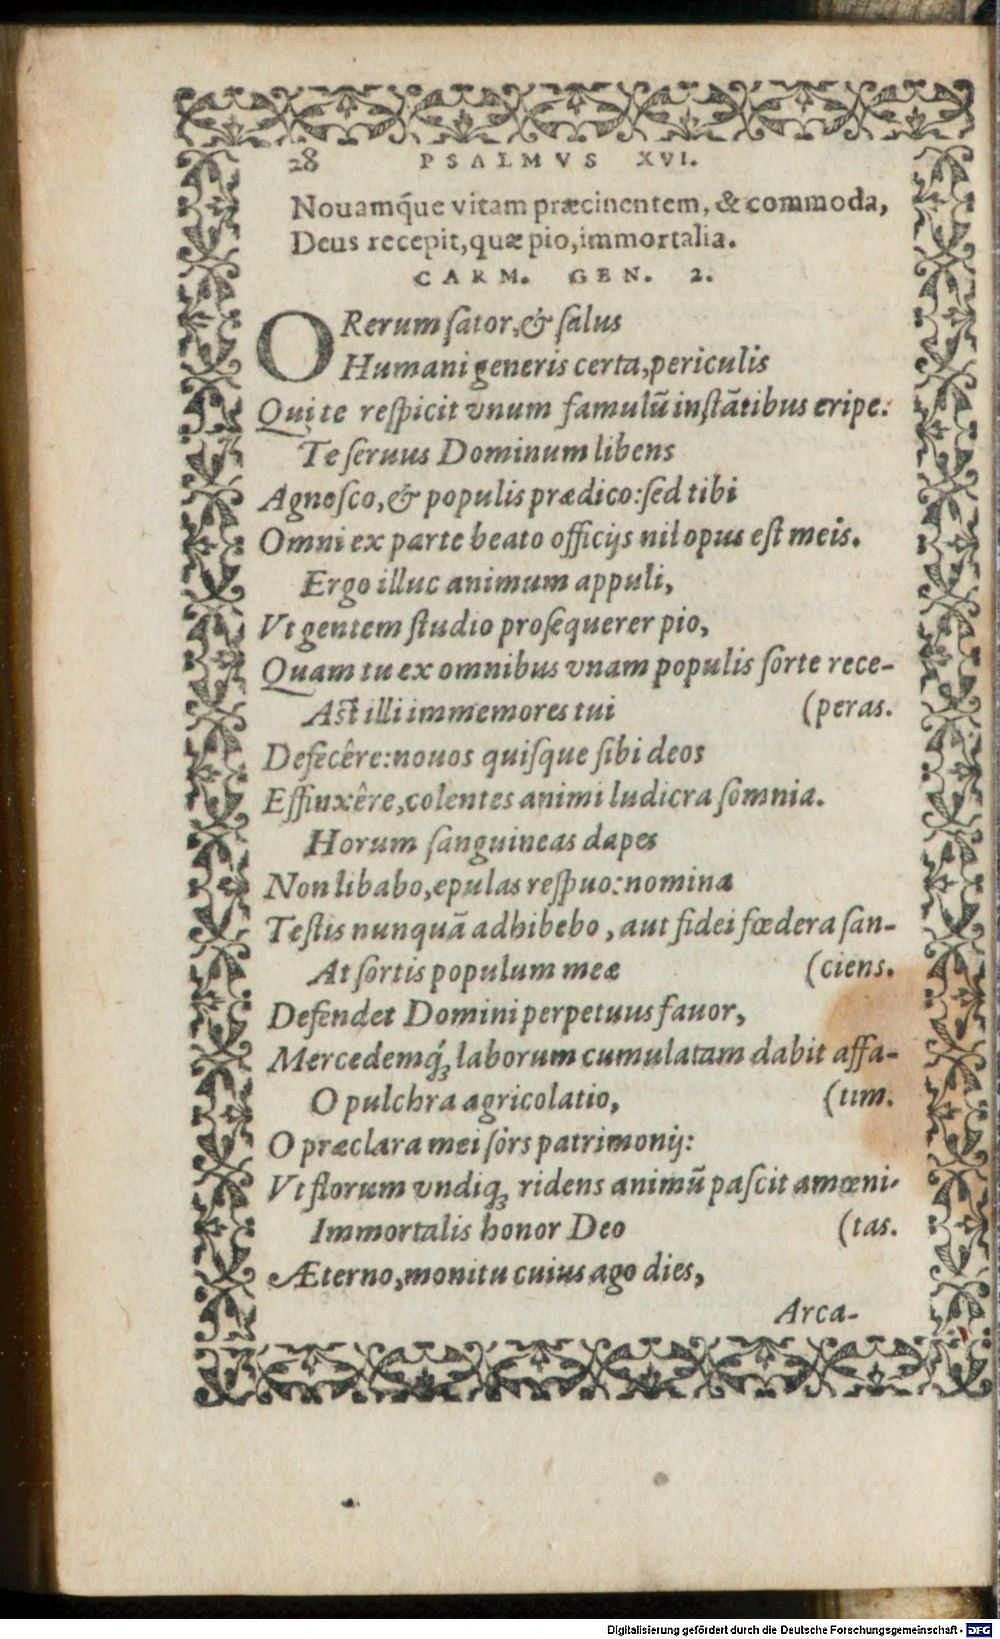 28 PSALMVS XVI.
Nouamq́ue vitam præcinentem, & commoda,
Deus recepit, quæ pio, immortalia.
CARM. GEN. 2.
O Rerum ſator, & ſalus
Humani generis certa, periculis
Qui te reſpicit vnum famulũ inſtãtibus eripe.
Te ſeruus Dominum libens
Agnoſco, & populis prædico: ſed tibi
Omni ex parte beato officijs nil opus eſt meis.
Ergo illuc animum appuli,
Vt gentem ſtudio proſequerer pio,
Quam tu ex omnibus vnam populis ſorte rece-
Aſt illi immemores tui (peras.
Defecêre: nouos quiſque ſibi deos
Effinxêre, colentes animi ludicra ſomnia.
Horum ſanguineas dapes
Non libabo, epulas reſpuo: nomina
Teſtis nunquã adhibebo, aut fidei fœdera ſan-
At ſortis populum meæ (ciens.
Defendet Domini perpetuus fauor,
Mercedemq́ꝫ laborum cumulatam dabit affa-
O pulchra agricolatio, (tim.
O præclara mei ſors patrimonij:
Vt florum vndiqꝫ ridens animũ paſcit amœni-
Immortalis honor Deo (tas.
Æterno, monitu cuius ago dies,
Arca-
Digitalisierung gefördert durch die Deutsche Forschungsgemeinschaft - DFG